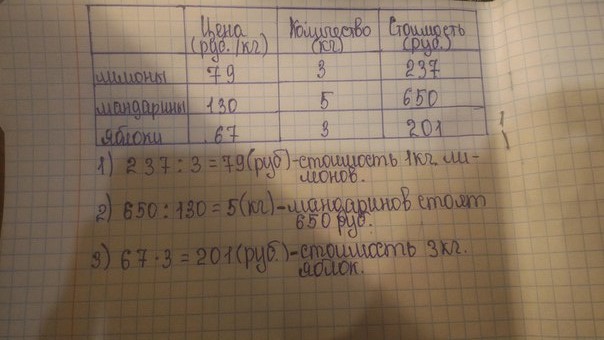 Цена (руб./кг) Количество (кг) Стоимость (руб.)
лимоны 79 3 237
мандарины 130 5 650
яблоки 67 3 201
1) 237 : 3 = 79 (руб) - стоимость 1 кг ли-
монов.
2) 650 : 130 = 5 (кг) - мандаринов стоят
650 руб.
3) 67 · 3 = 201 (руб.) - стоимость 3 кг.
яблок.